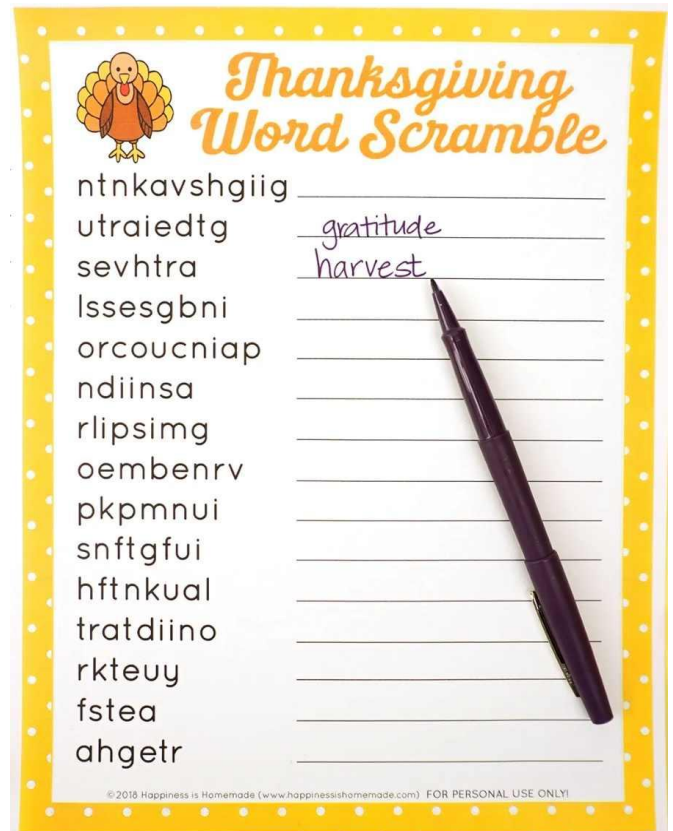 Thanksgiving
Word Scramble
ntnkavshgiig
utraiedtg gratitude
sevhtra harvest
lssesgbni
orcoucniap
ndiinsa
rlipsimg
oembenrv
pkpmnui
snftgfui
hftnkual
tratdiino
rkteuy
fstea
ahgetr
©2018 Happiness is Homemade (www.happinessishomemade.com) FOR PERSONAL USE ONLY!